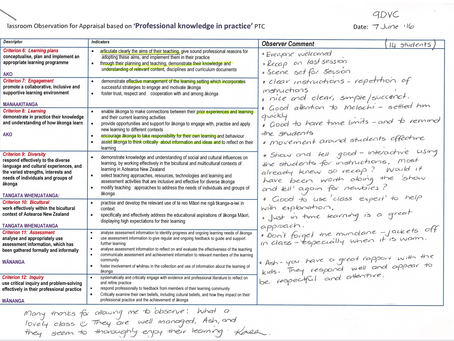 9DVC
Classroom Observation for Appraisal based on 'Professional knowledge in practice' PTC
Date: 7 June '16
Descriptor
Indicators
Observer Comment
(14 students)
Criterion 6: Learning plans
conceptualise, plan and implement an
appropriate learning programme
AKO
articulate clearly the aims of their teaching, give sound professional reasons for
adopting these aims, and implement them in their practice
through their planning and teaching, demonstrate their knowledge and
understanding of relevant content, disciplines and curriculum documents
Criterion 7: Engagement
promote a collaborative, inclusive and
supportive learning environment
MANAAKITANGA
demonstrate effective management of the learning setting which incorporates
successful strategies to engage and motivate ākonga
foster trust, respect and cooperation with and among ākonga
Criterion 8: Learning
demonstrate in practice their knowledge
and understanding of how ākonga learn
AKO
enable ākonga to make connections between their prior experiences and learning
and their current learning activities
provide opportunities and support for ākonga to engage with, practise and apply
new learning to different contexts
encourage ākonga to take responsibility for their own learning and behaviour
assist ākonga to think critically about information and ideas and to reflect on
their learning
Criterion 9: Diversity
respond effectively to the diverse
language and cultural experiences, and
the varied strengths, interests and
needs of individuals and groups of
ākonga
TANGATA WHENUATANGA:
demonstrate knowledge and understanding of social and cultural influences on
learning, by working effectively in the bicultural and multicultural contexts of
learning in Aotearoa New Zealand
select teaching approaches, resources, technologies and learning and
assessment activities that are inclusive and effective for diverse ākonga
modify teaching approaches to address the needs of individuals and groups of
ākonga
Criterion 10: Bicultural
work effectively within the bicultural
context of Aotearoa New Zealand
TANGATA WHENUATANGA
practise and develop the relevant use of te reo Māori me ngā tikanga-a-iwi in
context
specifically and effectively address the educational aspirations of ākonga Māori,
displaying high expectations for their learning
Criterion 11: Assessment
analyse and appropriately use
assessment information, which has
been gathered formally and informally
WĀNANGA
analyse assessment information to identify progress and ongoing learning needs of ākonga
use assessment information to give regular and ongoing feedback to guide and support
further learning
analyse assessment information to reflect on and evaluate the effectiveness of the teaching
communicate assessment and achievement information to relevant members of the learning
community
foster involvement of whānau in the collection and use of information about the learning of
ākonga
Criterion 12: Inquiry
use critical inquiry and problem-solving
effectively in their professional practice
WĀNANGA
systematically and critically engage with evidence and professional literature to reflect on
and refine practice
respond professionally to feedback from members of their learning community
Critically examine their own beliefs, including cultural beliefs, and how they impact on their
professional practice and the achievement of ākonga
• Everyone welcomed
• Recap on last session
• Scene set for session
• clear instructions - repetition of
instructions
• nice and clear, simple/succinct.
• Good attention to Malachi - settled him
quickly
• Good to have time limits - and to remind
the students
• movement around students effective
• Show and tell good - interactive using
the students for instructions, most
already knew so recap? Would it
have been worth along the 'show
and tell' again for newbies?
• Good to use 'class expert' to help
with explanation.
• Just in time learning is a great
approach.
• Don't forget the mundane - jackets off
in class - especially when it is warm.
• Ash - you have a great rapport with the
kids. They respond well and appear to
be respectful and attentive.
Many thanks for allowing me to observe! What a
lovely class ☺ They are well managed, Ash, and
they seem to thoroughly enjoy their learning.